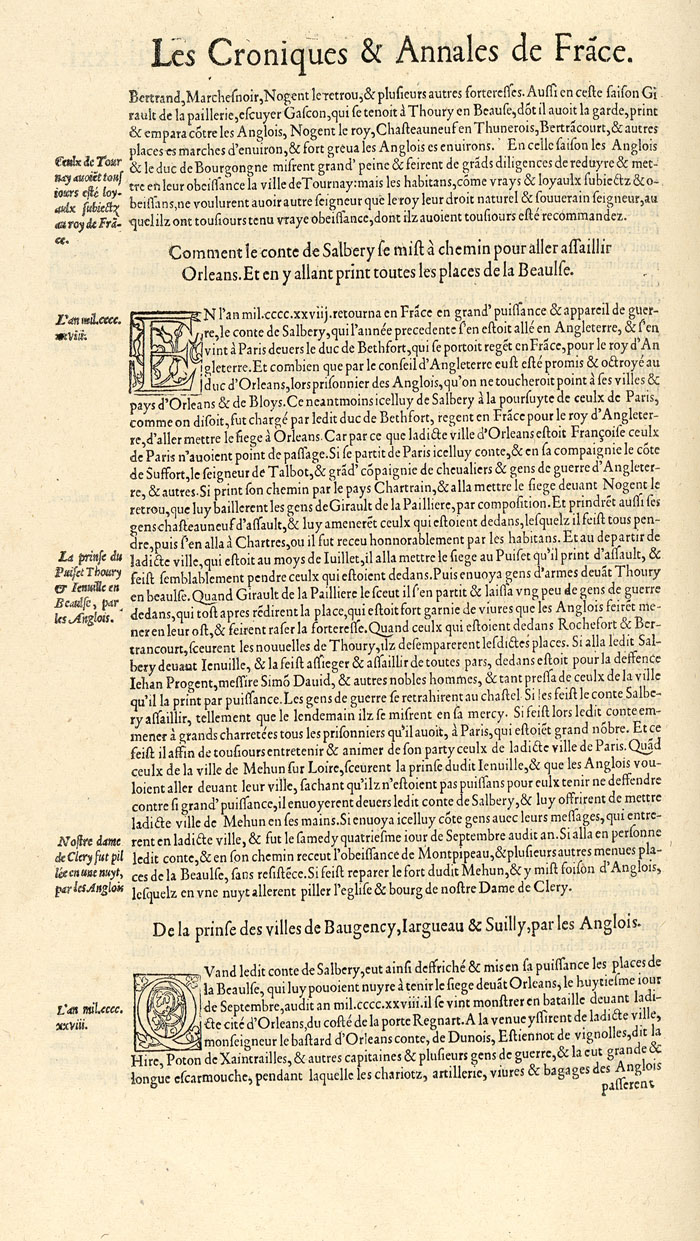 Les Croniques & Annales de Frāce.
Bertrand, Marchesnoir, Nogent le retrou, & plusieurs autres forteresses. Aussi en ceste saison Gi
rault de la paillerie, escuyer Gascon, qui se tenoit à Thoury en Beause, dōt il auoit la garde, print
& empara cōtre les Anglois, Nogent le roy, Chasteauneuf en Thunerois, Bertrācourt, & autres
places es marches d'enuiron, & fort greua les Anglois es enuirons. En celle saison les Anglois
& le duc de Bourgongne misrent grand' peine & feirent de grāds diligences de reduyre & met-
tre en leur obeissance la ville de Tournay: mais les habitans, cōme vrays & loyaulx subiectz & o-
beissans, ne voulurent auoir autre seigneur que le roy leur droit naturel & souuerain seigneur, au
quel ilz ont tousiours tenu vraye obeissance, dont ilz auoient tousiours esté recommandez.
Ceulx de Tour
nay auoiēt tous
iours esté loy-
aulx subiectz
au roy de Frā-
ce.
Comment le conte de Salbery se mist à chemin pour aller assaillir
Orleans. Et en y allant print toutes les places de la Beaulse.
L'an mil.cccc.
xxviii.
EN l'an mil.cccc.xxviij. retourna en Frāce en grand' puissance & appareil de guer-
re, le conte de Salbery, qui l'année precedente s'en estoit allé en Angleterre, & s'en
vint à Paris deuers le duc de Bethfort, qui se portoit regēt en Frāce, pour le roy d'An
gleterre. Et combien que par le conseil d'Angleterre eust esté promis & octroyé au
duc d'Orleans, lors prisonnier des Anglois, qu'on ne toucheroit point à ses villes &
pays d'Orleans & de Bloys. Ce neantmoins icelluy de Salbery à la poursuyte de ceulx de Paris,
comme on disoit, fut chargé par ledit duc de Bethfort, regent en Frāce pour le roy d'Angleter-
re, d'aller mettre le siege à Orleans. Car par ce que ladicte ville d'Orleans estoit Françoise ceulx
de Paris n'auoient point de passage. Si se partit de Paris icelluy conte, & en sa compaignie le cōte
de Suffort, le seigneur de Talbot, & grād' cōpaignie de cheualiers & gens de guerre d'Angleter-
re, & autres. Si print son chemin par le pays Chartrain, & alla mettre le siege deuant Nogent le
retrou, que luy baillerent les gens de Girault de la Pailliere, par composition. Et prindrēt aussi ses
gens chasteauneuf d'assault, & luy amenerēt ceulx qui estoient dedans, lesquelz il feist tous pen-
dre, puis s'en alla à Chartres, ou il fut receu honnorablement par les habitans. Et au departir de
ladicte ville, qui estoit au moys de Iuillet, il alla mettre le siege au Puiset qu'il print d'assault, &
feist semblablement pendre ceulx qui estoient dedans. Puis enuoya gens d'armes deuāt Thoury
en beaulse. Quand Girault de la Pailliere le sceut il s'en partit & laissa vng peu de gens de guerre
dedans, qui tost apres rēdirent la place, qui estoit fort garnie de viures que les Anglois feirēt me-
ner en leur ost, & feirent raser la forteresse. Quand ceulx qui estoient dedans Rochefort & Ber-
trancourt, sceurent les nouuelles de Thoury, ilz desemparerent lesdictes places. Si alla ledit Sal-
bery deuant Ienuille, & la feist assieger & assaillir de toutes pars, dedans estoit pour la deffence
Iehan Progent, messire Simō Dauid, & autres nobles hommes, & tant pressa de ceulx de la ville
qu'il la print par puissance. Les gens de guerre se retrahirent au chastel Si les feist le conte Salbe-
ry assaillir, tellement que le lendemain ilz se misrent en sa mercy. Si feist lors ledit conte em-
mener à grands charretées tous les prisonniers qu'il auoit, à Paris, qui estoiēt grand nōbre. Et ce
feist il affin de tousiours entretenir & animer de son party ceulx de ladicte ville de Paris. Quād
ceulx de la ville de Mehun sur Loire, sceurent la prinse dudit Ienuille, & que les Anglois vou-
loient aller deuant leur ville, sachant qu'ilz n'estoient pas puissans pour eulx tenir ne deffendre
contre si grand' puissance, il enuoyerent deuers ledit conte de Salbery, & luy offrirent de mettre
ladicte ville de Mehun en ses mains. Si enuoya icelluy cōte gens auec leurs messages, qui entre-
rent en ladicte ville, & fut le samedy quatriesme iour de Septembre audit an. Si alla en personne
ledit conte, & en son chemin receut l'obeissance de Montpipeau, & plusieurs autres menues pla-
ces de la Beaulse, sans resistēce. Si feist reparer le fort dudit Mehun, & y mist foison d'Anglois,
lesquelz en vne nuyt allerent piller l'eglise & bourg de nostre Dame de Clery.
La prinse du
Puiset Thoury
& Ienuille en
Beaulse, par
les Anglois.
Nostre dame
de Clery fut pil
lée en une nuyt,
par les Anglois
De la prinse des villes de Baugency, Iargueau & Suilly, par les Anglois.
L'an mil.cccc.
xxviii.
QVand ledit conte de Salbery, eut ainsi deffriché & mis en sa puissance les places de
la Beaulse, qui luy pouoient nuyre à tenir le siege deuāt Orleans, le huytiesme iour
de Septembre, audit an mil.cccc.xxviii. il se vint monstrer en bataille deuant ladi-
cte cité d'Orleans, du costé de la porte Regnart. A la venue yssirent de ladicte ville,
monseigneur le bastard d'Orleans conte, de Dunois, Estiennot de vignolles, dit la
Hire, Poton de Xaintrailles, & autres capitaines & plusieurs gens de guerre, & la eut grande &
longue escarmouche, pendant laquelle les chariotz, artillerie, viures & bagages des Anglois
passerent